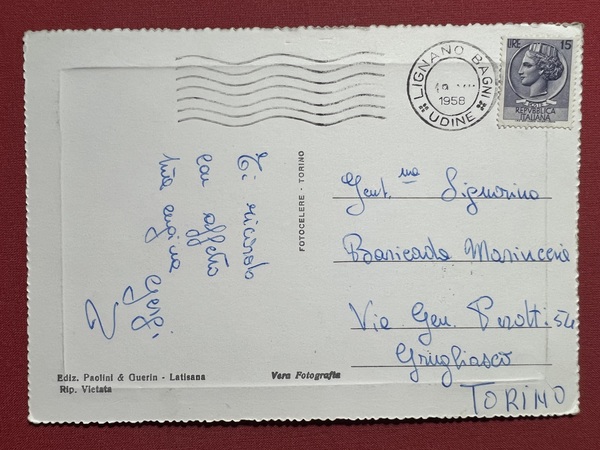 LIGNANO BAGNI
1958
UDINE
LIRE 15
POSTE
REPVBBLICA
ITALIANA
Ti ricordo
con affetto
tua cugina
FOTOCELERE - TORINO
Gent.ma Signorina
Via Gen. Perotti 54
Grugliasco
TORINO
Ediz. Paolini & Guerin - Latisana
Rip. Vietata
Vera Fotografia